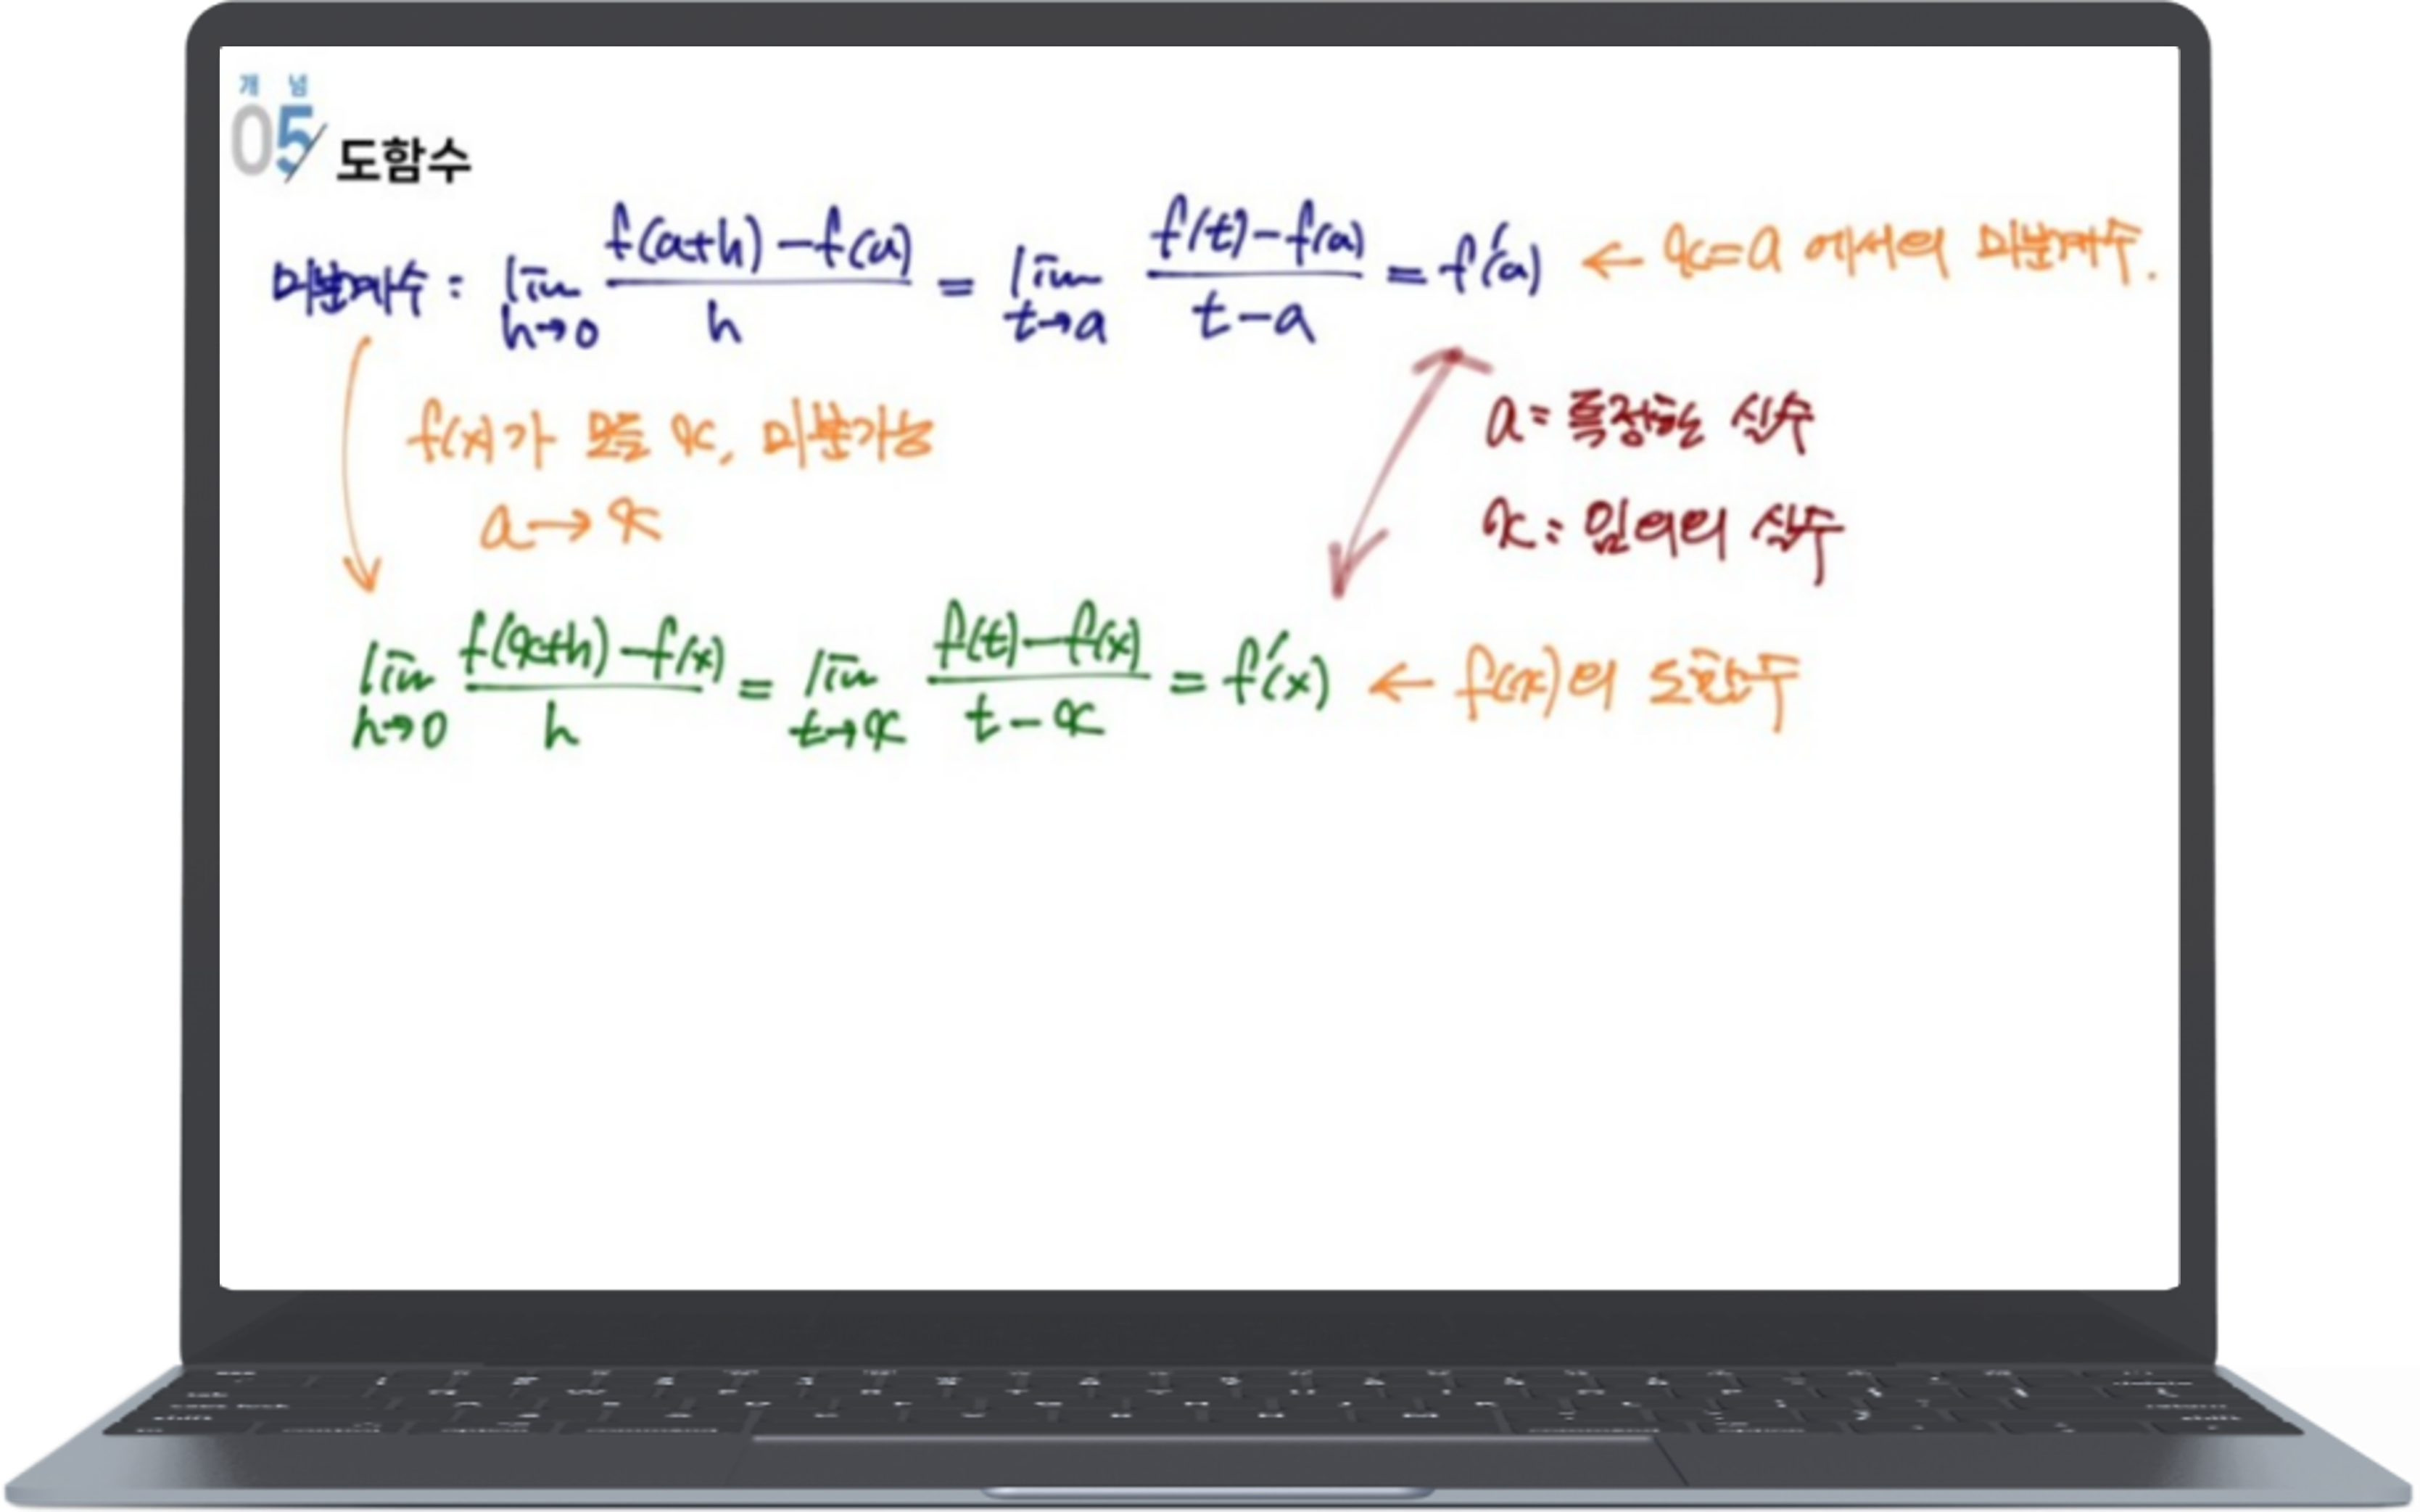 개념
05 도함수
미분계수 : lim h→0 f(a+h)-f(a) / h = lim t→a f(t)-f(a) / t-a = f'(a) ← x=a 에서의 미분계수.
f(x)가 모든 x, 미분가능
a → x
a: 특정한 실수
x: 임의의 실수
lim h→0 f(x+h)-f(x) / h = lim t→x f(t)-f(x) / t-x = f'(x) ← f(x)의 도함수